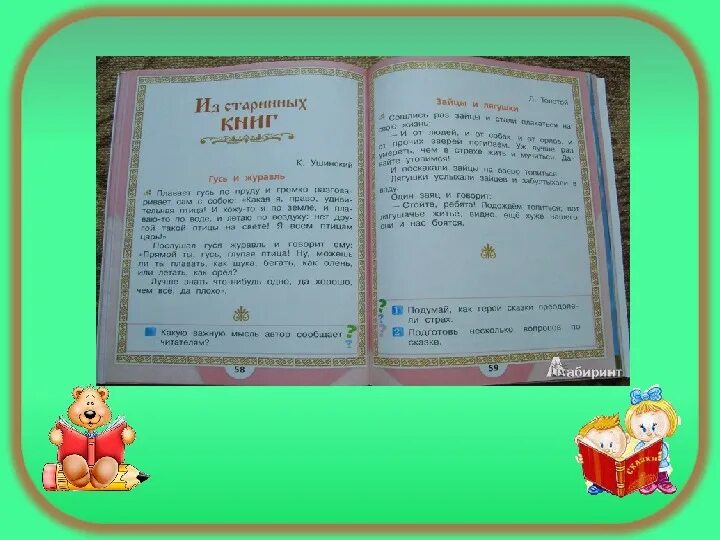 Из старинных
КНИГ
К. Ушинский
Гусь и журавль
Плавает гусь по пруду и громко разгова-
ривает сам с собою: «Какая я, право, удиви-
тельная птица! И хожу-то я по земле, и пла-
ваю-то по воде, и летаю по воздуху: нет дру-
гой такой птицы на свете! Я всем птицам
царь!»
Послушал гуся журавль и говорит ему:
«Прямой ты, гусь, глупая птица! Ну, можешь
ли ты плавать, как щука, бегать, как олень,
или летать, как орёл?
Лучше знать что-нибудь одно, да хорошо,
чем всё, да плохо».
Какую важную мысль автор сообщает
читателям?
?
?
58
Л. Толстой
Зайцы и лягушки
Сошлись раз зайцы и стали плакаться на
свою жизнь:
— И от людей, и от собак, и от орлов, и
от прочих зверей погибаем. Уж лучше раз
умереть, чем в страхе жить и мучиться. Да-
вайте утопимся!
И поскакали зайцы на озеро топиться.
Лягушки услыхали зайцев и забултыхали в
воду.
Один заяц и говорит:
— Стойте, ребята! Подождём топиться, вот
лягушачье житьё, видно, ещё хуже нашего:
они и нас боятся.
?
?
1 Подумай, как герои сказки преодоле-
ли страх.
2 Подготовь несколько вопросов по
сказке.
59
Лабиринт
СКАЗКИ